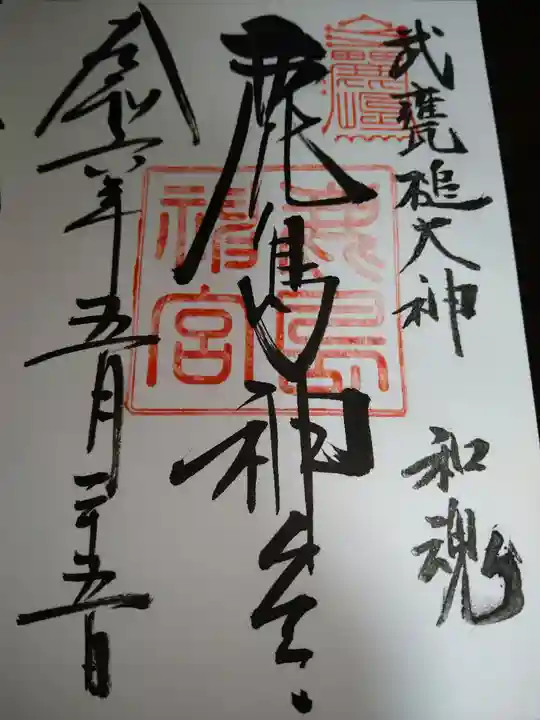 武甕槌大神 和魂
鹿島神宮
鹿島
神宮
令和六年五月二十五日